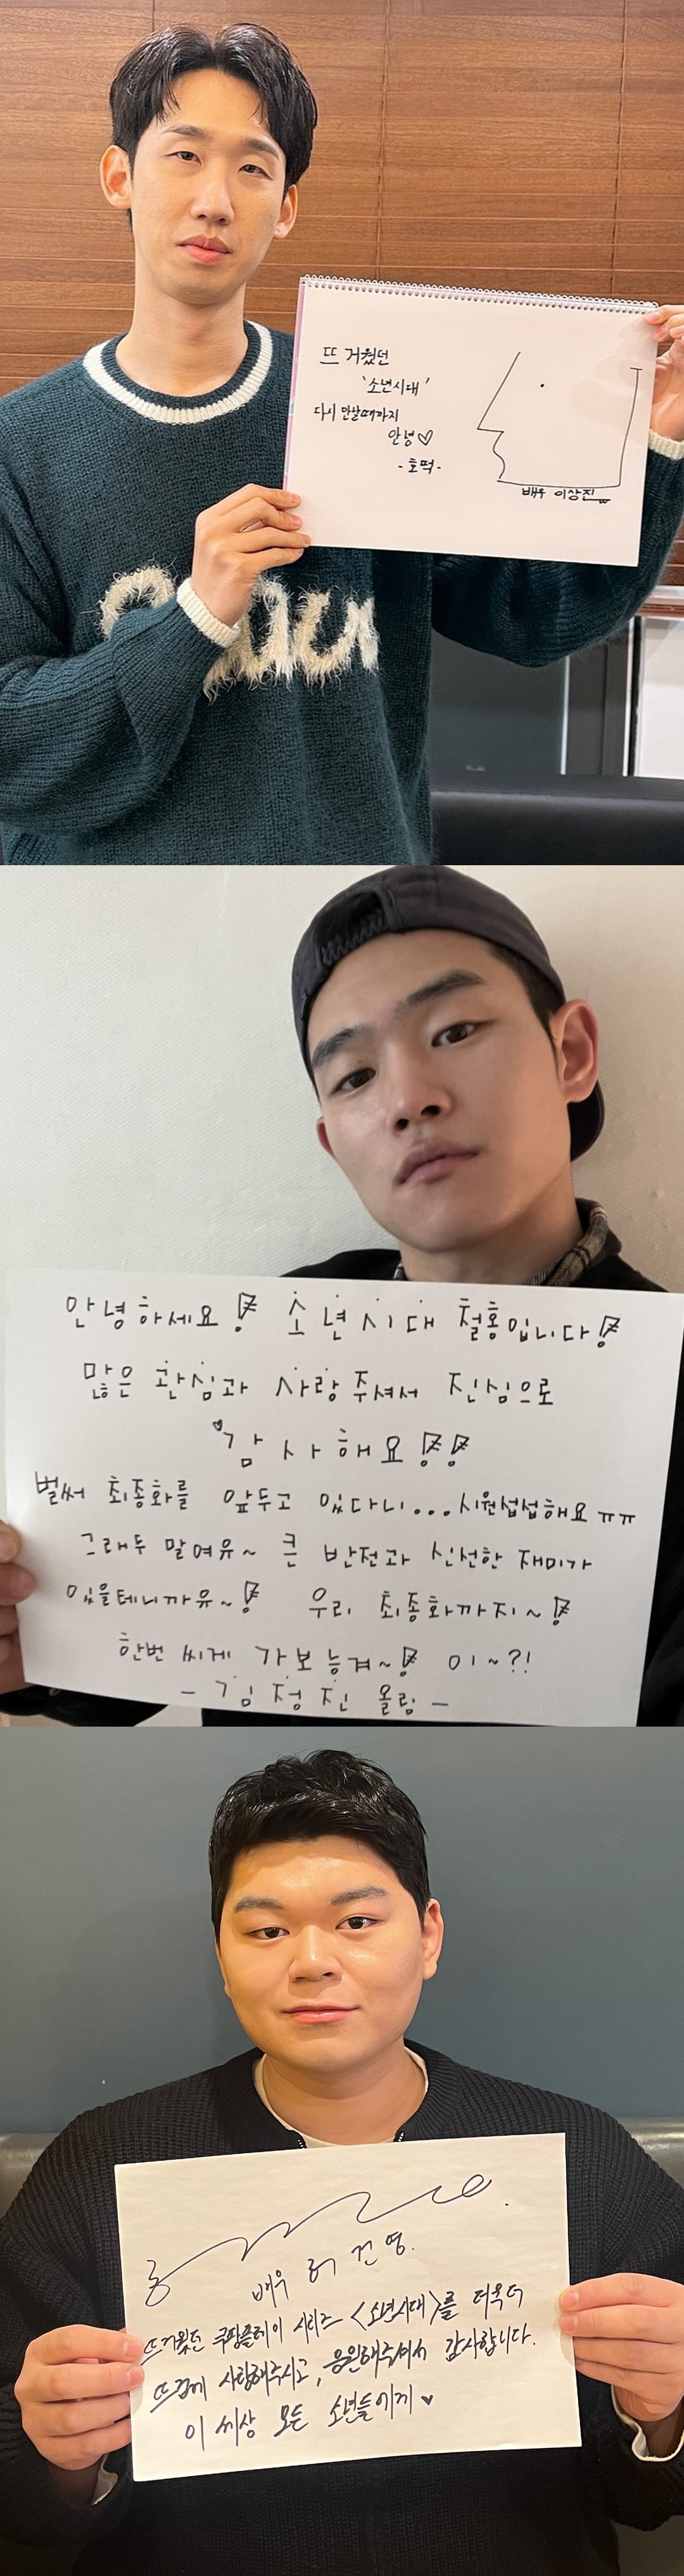 뜨거웠던
'소년시대'
다시 만날때까지
안녕♡
-호떡-
배우 이상진
안녕하세요! 소년시대 철홍입니다!
많은 관심과 사랑 주셔서 진심으로
감사해요!!
벌써 최종화를 앞두고 있다니...시원섭섭해요ㅠㅠ
그래두 말여유~ 큰 반전과 신선한 재미가
있을테니까유~! 우리 최종화까지~!
한번 씨게 가보능겨~! 이~?!
- 김정진 올림 -
배우 허건영.
뜨거웠던 쿠팡플레이 시리즈 <소년시대>를 더욱더
뜨겁게 사랑해주시고, 응원해주셔서 감사합니다.
이 세상 모든 소년들에게♥